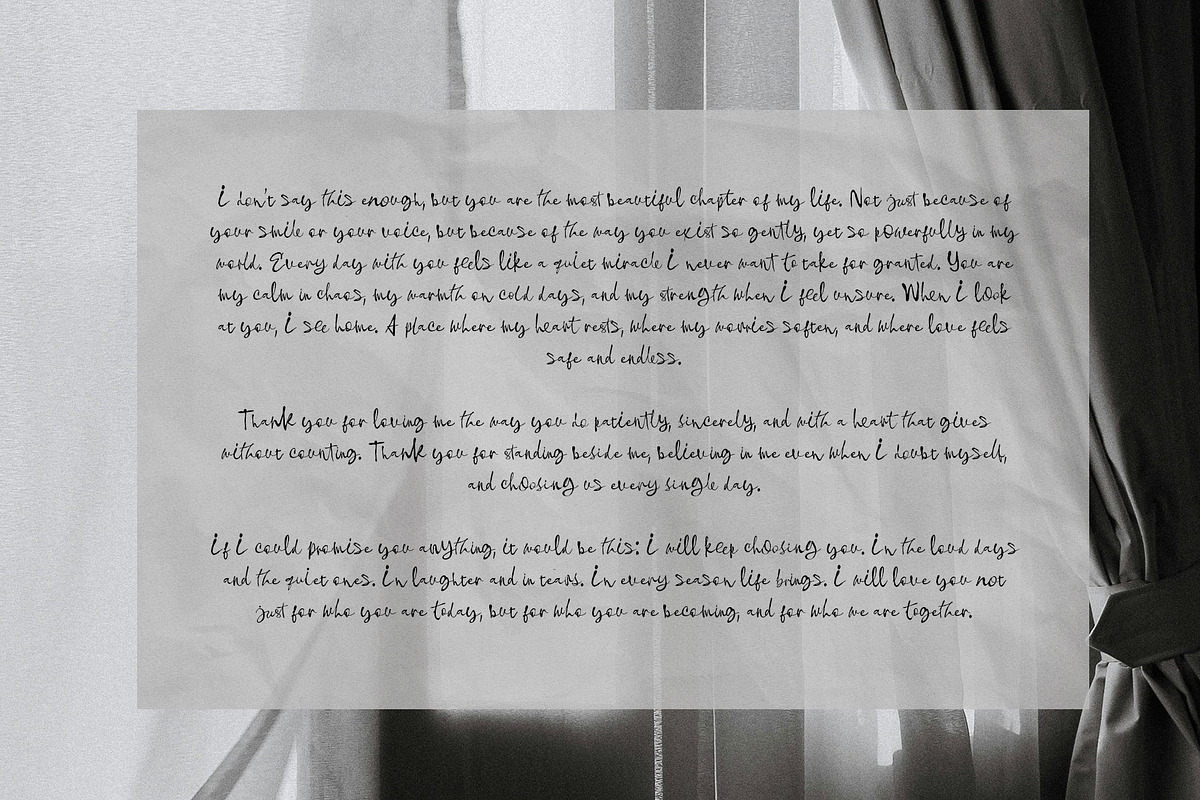 I don't say this enough, but you are the most beautiful chapter of my life. Not just because of
your smile or your voice, but because of the way you exist so gently, yet so powerfully in my
world. Every day with you feels like a quiet miracle I never want to take for granted. You are
my calm in chaos, my warmth on cold days, and my strength when I feel unsure. When I look
at you, I see home. A place where my heart rests, where my worries soften, and where love feels
safe and endless.
Thank you for loving me the way you do patiently, sincerely, and with a heart that gives
without counting. Thank you for standing beside me, believing in me even when I doubt myself,
and choosing us every single day.
If I could promise you anything, it would be this: I will keep choosing you. In the loud days
and the quiet ones. In laughter and in tears. In every season life brings. I will love you not
just for who you are today, but for who you are becoming, and for who we are together.